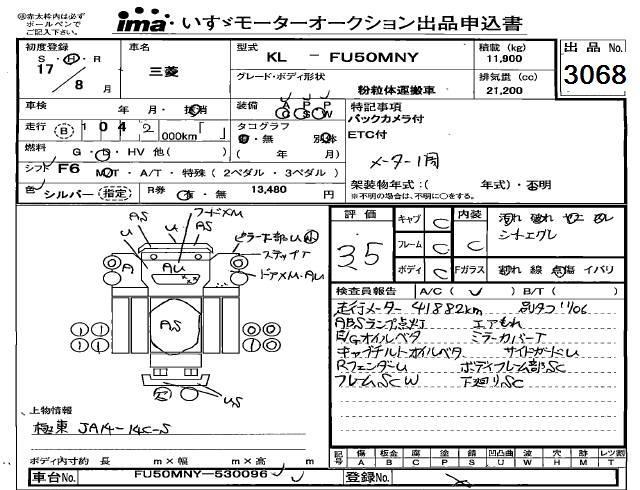 ㊟赤太枠内は必ず
ボールペンで
ご記入下さい。
ima いすゞモーターオークション出品申込書
初度登録
S・H・R
17
8 月
車名
三菱
型式
KL － FU50MNY
グレード・ボディ形状
粉粒体運搬車
積載 (kg)
11,900
排気量 (cc)
21,200
出品No.
3068
車検
年 月・抹消
装備
A P P
C S W
特記事項
バックカメラ付
ETC付
メーター1周
走行 B 104 2 000km「 」
タコグラフ
有・無 別体
( 年 月)
燃料
G・D・HV 他( )
シフト F6 M/T・A/T・特殊(2ペダル・3ペダル)
架装物年式:( 年式)・不明
※不明の場合は、年明に○をする。
色 シルバー 指定
R券 有・無 13,480 円
AS
フードXM
U
AS
U
ピラー下部U小
ステップT
A
AU
ドアXM・AU
AS
US
上物情報
極東 JA14-14C-S
ボディ内寸約 長 m×幅 m×高 m
車台No. FU50MNY-530096
登録No.
評価
3.5
キャブ C
フレーム C
ボディ C
内装
C
汚れ 破れ セコ ズレ
シートエグレ
Fガラス
割れ 線 点傷 イバリ
検査員報告 A/C( ) B/T( )
走行メーター 41882km
ABSランプ点灯 エアもれ
E/Gオイルベタ ミラーカバーT
キャブチルトオイルベタ サイドガードU
RフェンダーU ボディフレーム部SC
フレームSCW 下廻りSC
記号 傷 板金 腐 塗 錆 凹凸曲 波 穴 跡 レンズ割
A B C P S U W H M T